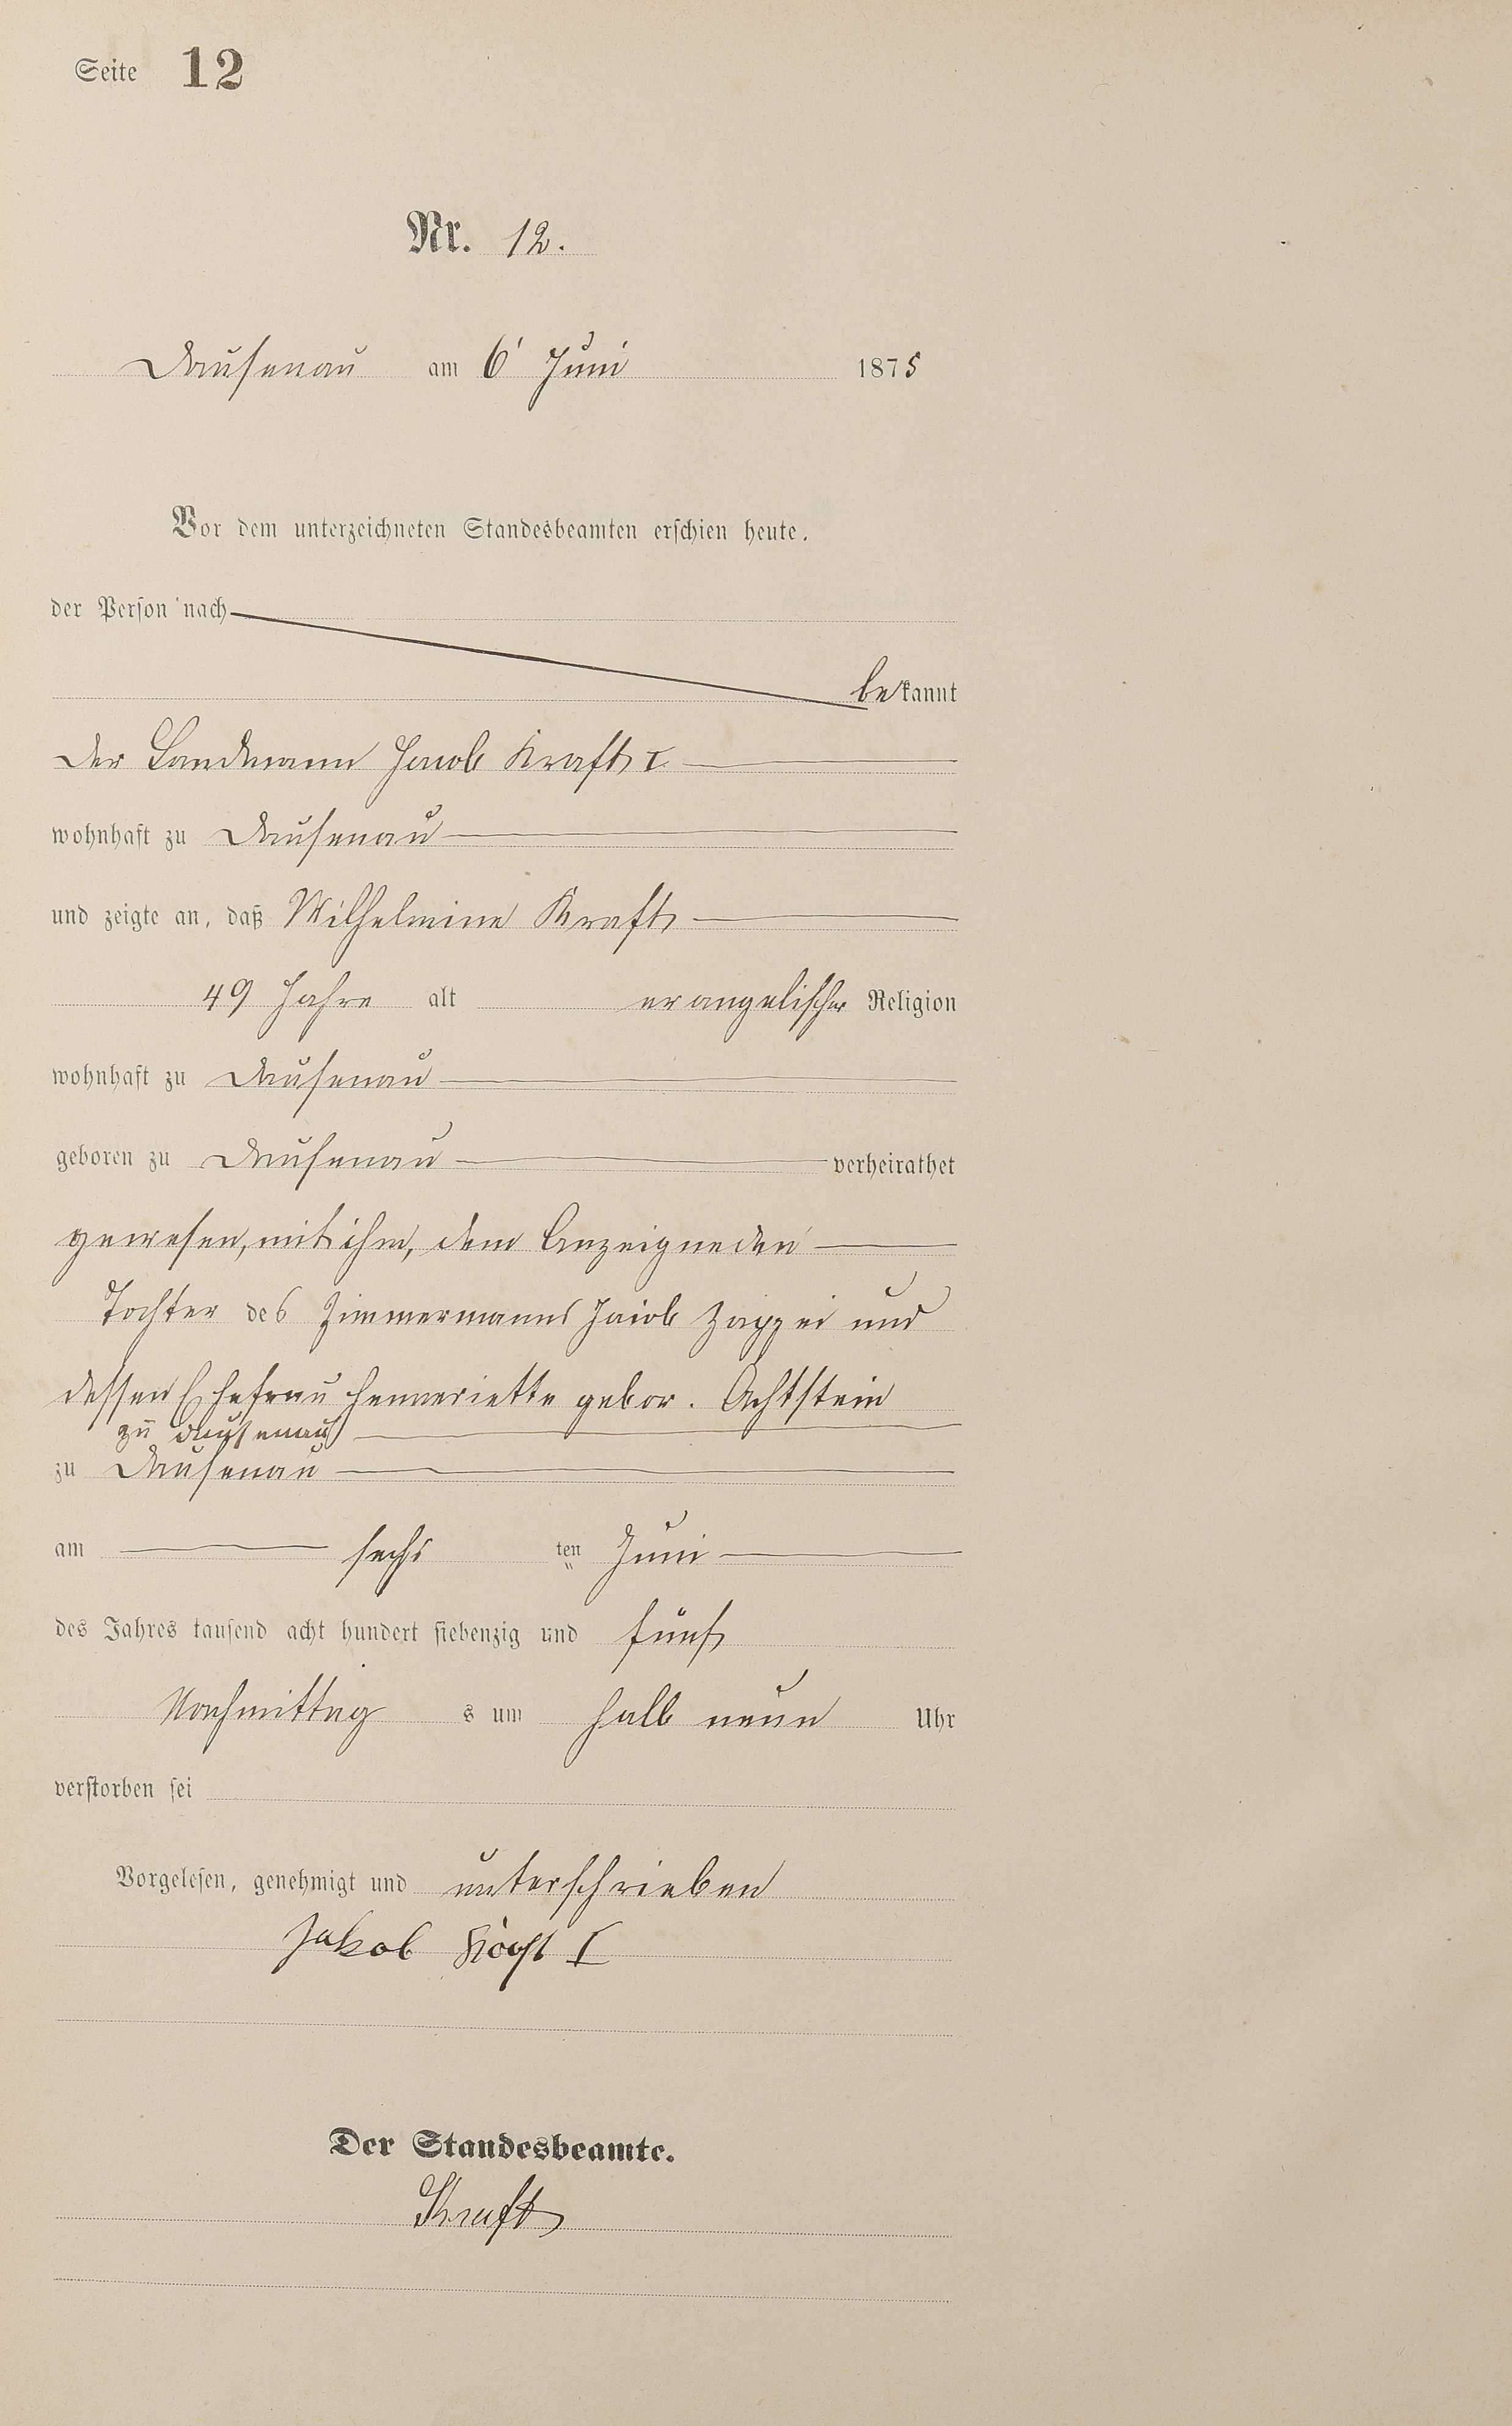 Seite 12
Nr. 12.
Dausenau am 6' Juni 1875
Vor dem unterzeichneten Standesbeamten erschien heute,
der Person nach
bekannt
der Landmann Jacob Kraft I
wohnhaft zu Dausenau
und zeigte an, daß Wilhelmine Kraft
49 Jahre alt evangelischer Religion
wohnhaft zu Dausenau
geboren zu Dausenau verheirathet
gewesen, mit ihm, dem Anzeigneden
Tochter des Zimmermanns Jacob und
dessen Ehefrau Henneriette gebor. Achtstein
zu Dausenau
zu Dausenau
am sechs ten Juni
des Jahres tausend acht hundert siebenzig und fünf
Nachmittag s um halb neun Uhr
verstorben sei
Vorgelesen, genehmigt und unterschrieben
Jakob Kraft I
Der Standesbeamte.
Kraft